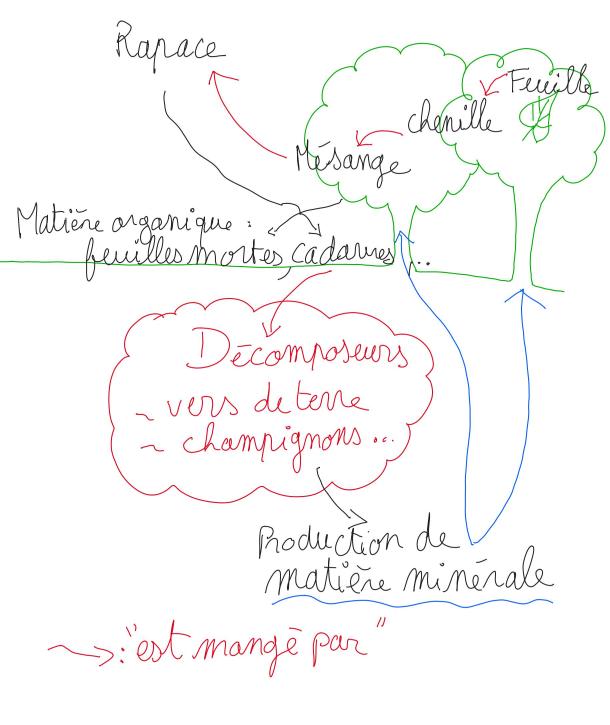 Rapace
Feuille
chenille
Mésange
Matière organique :
feuilles mortes, cadavres...
Décomposeurs
~ vers de terre
~ champignons...
Production de
matière minérale
: "est mangé par"